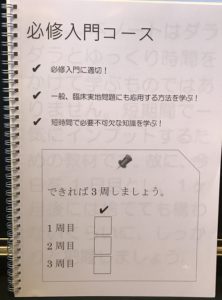 必修入門コース
✔ 必修入門に適切!
✔ 一般、臨床実地問題にも応用する方法を学ぶ!
✔ 短時間で必要不可欠な知識を学ぶ!
できれば3周しましょう。
✔
1周目
2周目
3周目